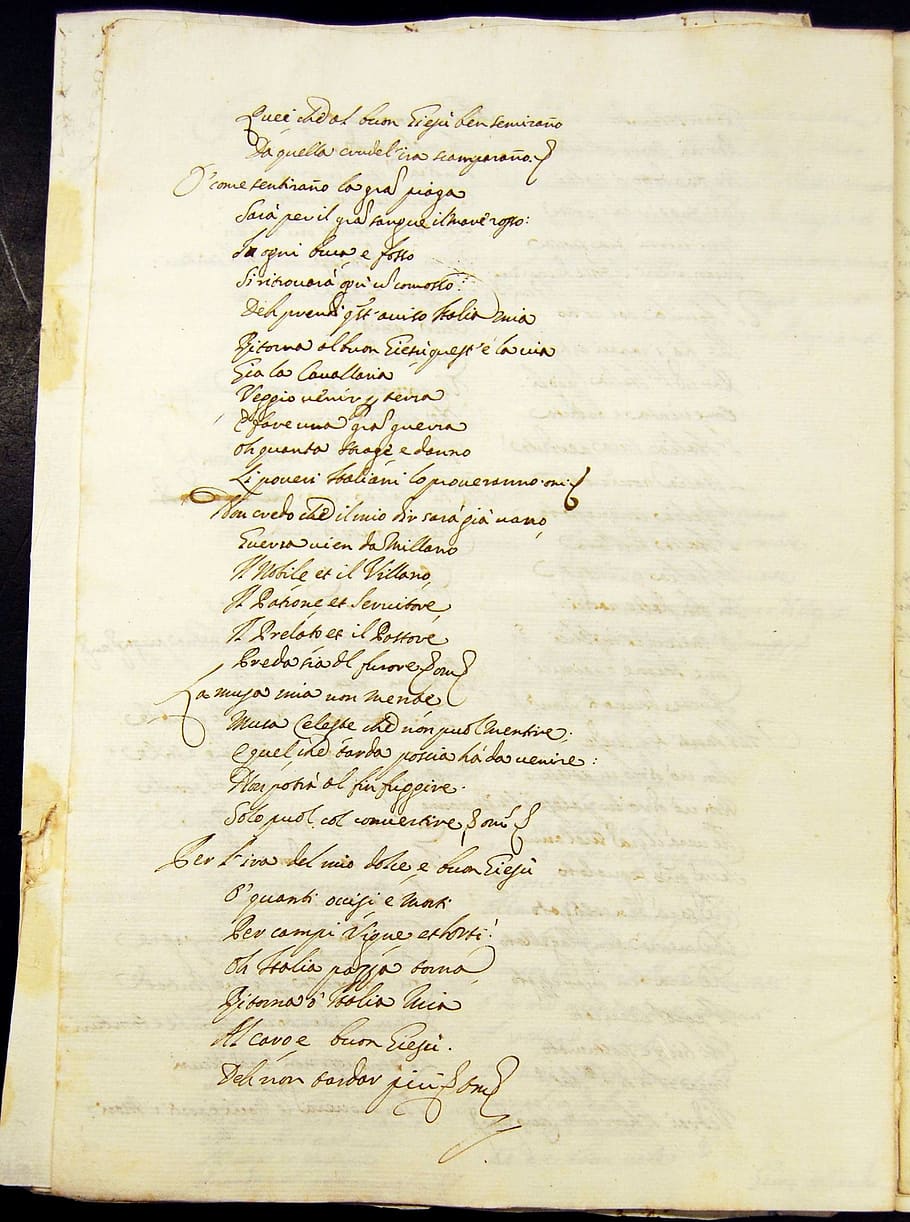 Quei che al buon Giesù ben serviraño
Da quella crudel' ira scamparaño.
O' come sentiraño la gra piaga
Sarà per il gra sangue il mare rosso:
In ogni buca e fosso
Si ritrouarà
Deh prendi qst' auiso Italia mia
Ritorna al buon Giesù quest' è la uia
Gia la Cavallaria
Veggio uenir p terra
E fare una gra guerra
Oh quanta strage e danno
Li poueri Italiani lo proueranno.
Non credo che il mio dir sarà già uano
Guerra uien da Millano
Il Nobile et il Villano,
Il Patrone et Seruitore,
Il Prelato et il Pastore
Preda sia dl furore
La musa mia non mente
Musa Celeste che non puol mentire;
E quel che tarda poscia hà da uenire:
Non potrà al fin fuggire.
Solo puol col conuertire,
Per l'ira del mio dolce e buon Giesù
O' quanti occisi e morti
Per campi Vigne et horti!
Oh Italia pazza torna
Ritorna ò Italia mia
Al caro e buon Giesù.
Deh non tardar più